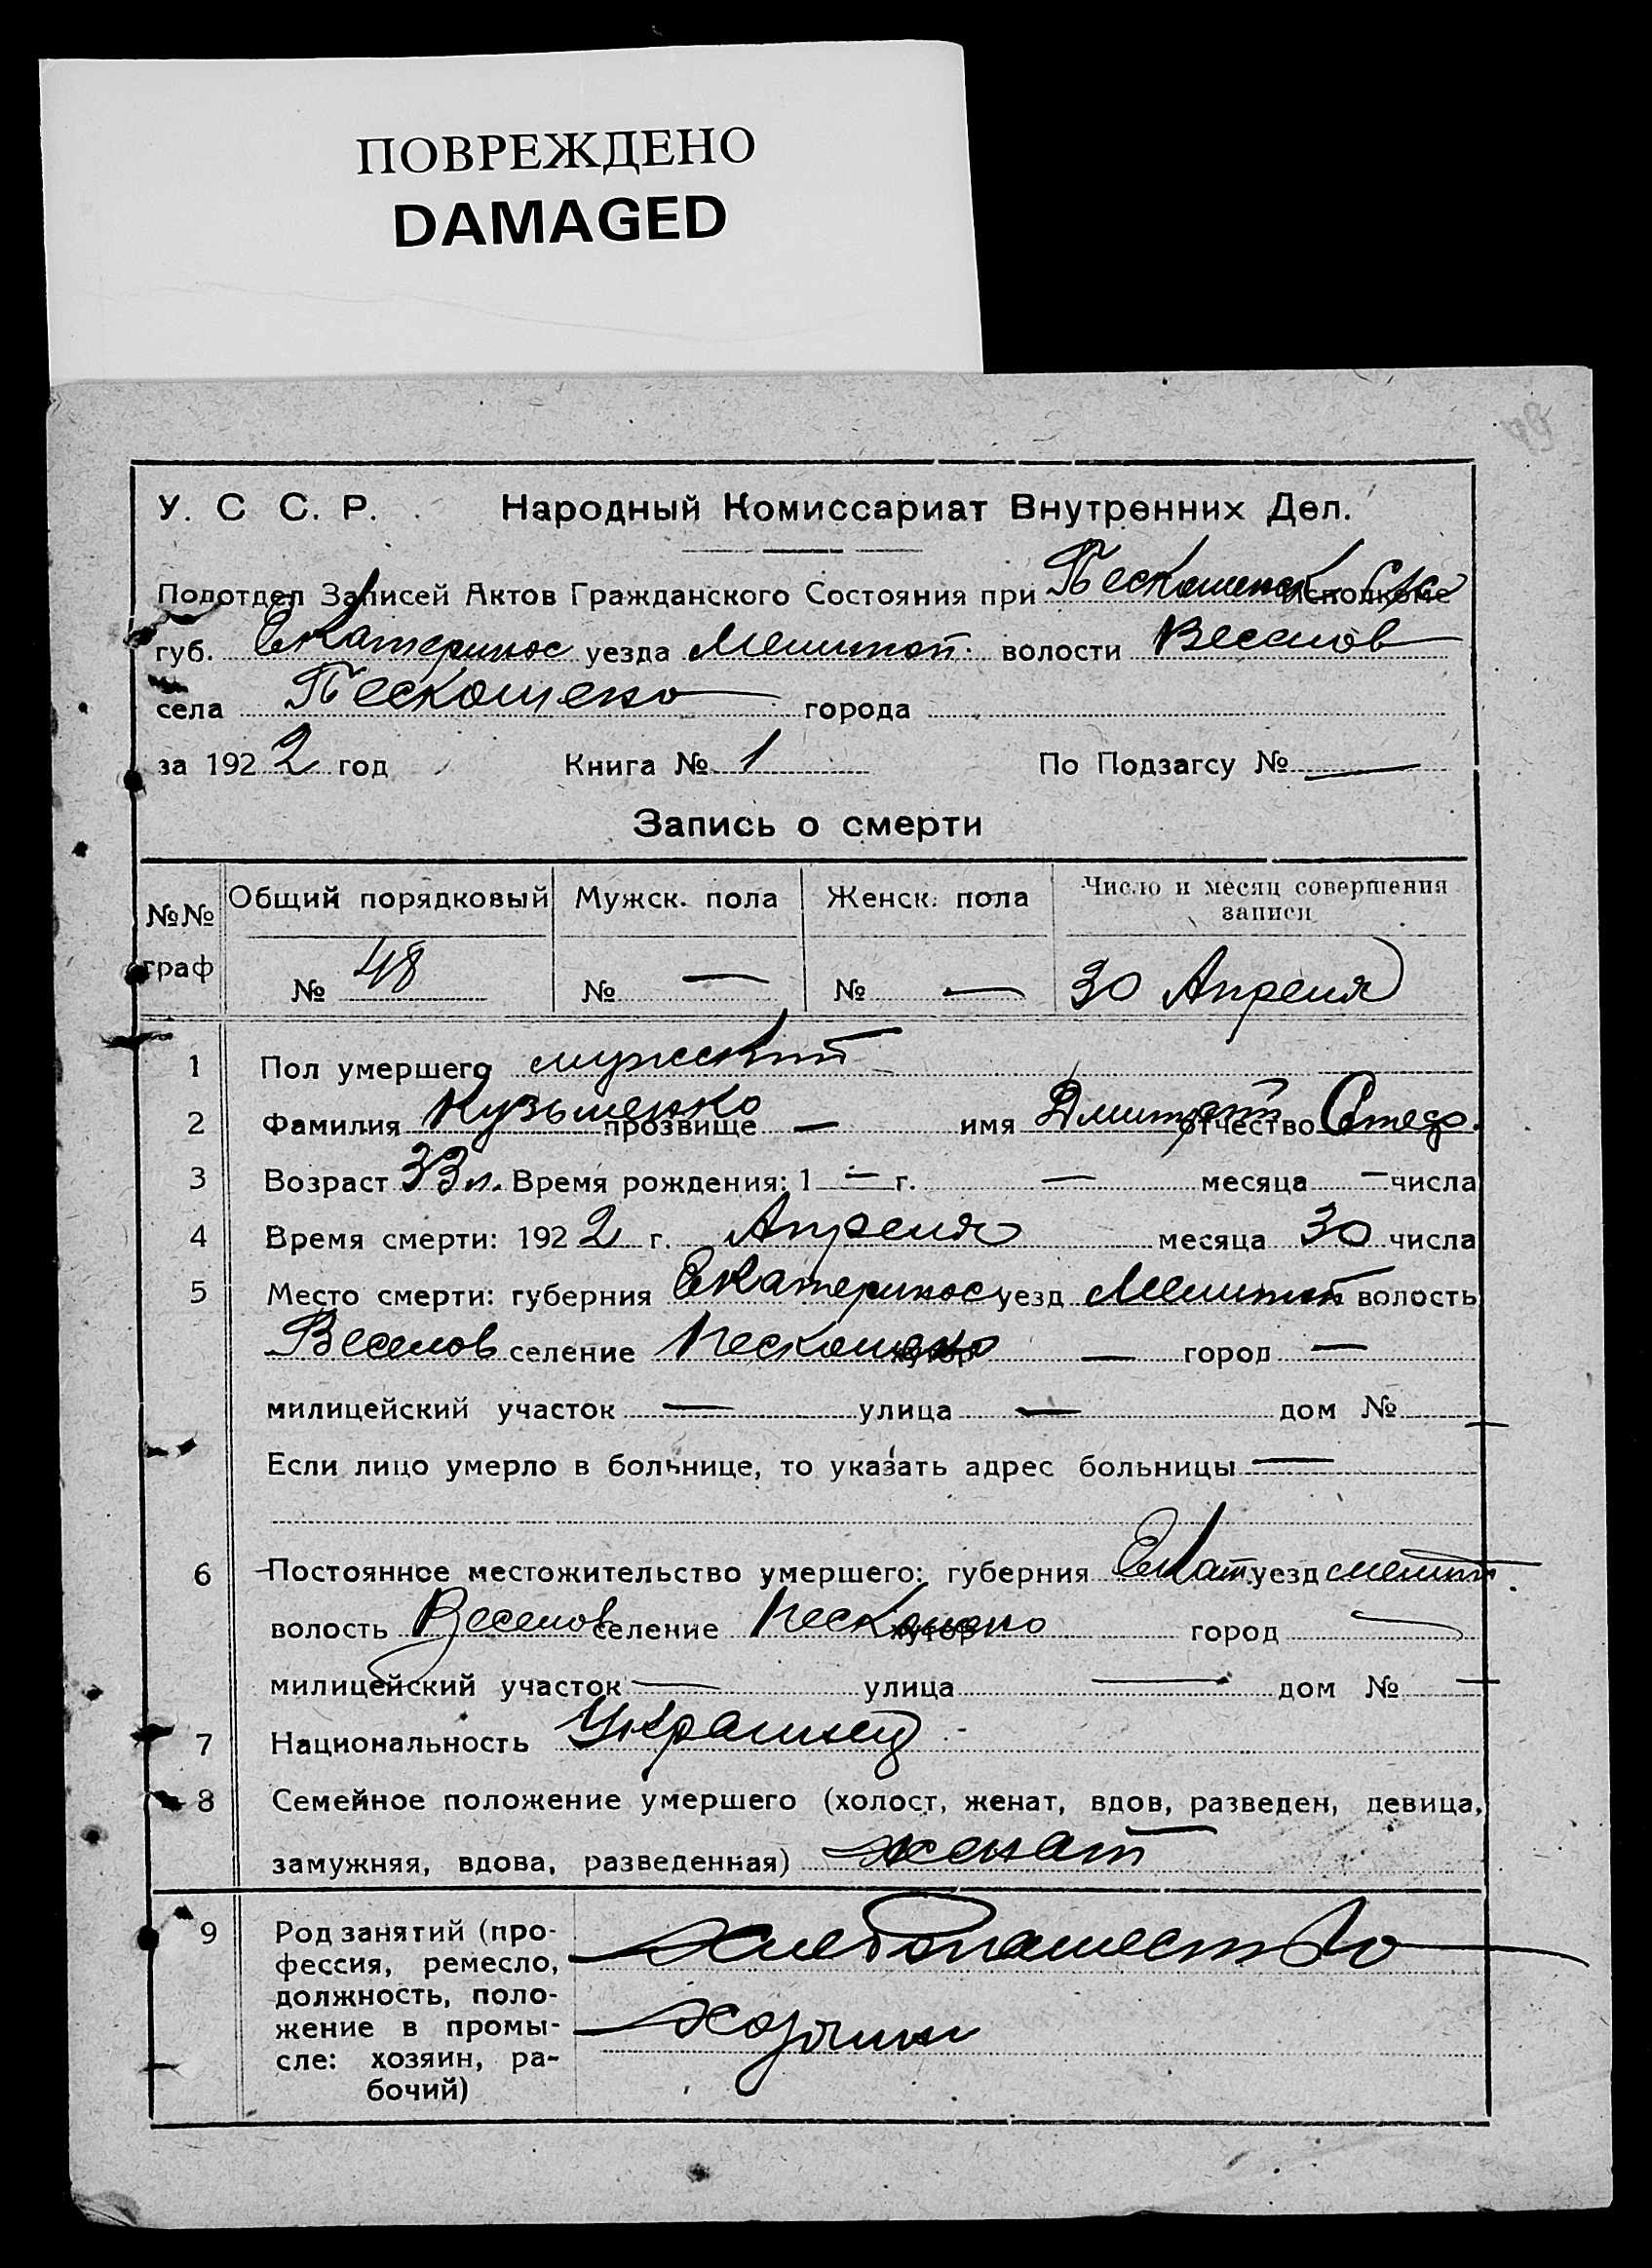 ПОВРЕЖДЕНО
DAMAGED
У. С С. Р. Народный Комиссариат Внутренних Дел.
Подотдел Записей Актов Гражданского Состояния при Пескошенск исполкоме
губ. Екатеринос уезда Мелитоп. волости Веселов
села Пескошено города
за 1922 год Книга № 1 По Подзагсу № —
Запись о смерти
№№ граф Общий порядковый Мужск. пола Женск. пола Число и месяц совершения записи
№ 48 № — № — 30 Апреля
1 Пол умершего мужской
2 Фамилия Кузьменко прозвище — имя Дмитрий отчество
3 Возраст 33 л. Время рождения: 1 — г. — месяца — числа
4 Время смерти: 1922 г. Апреля месяца 30 числа
5 Место смерти: губерния Екатеринос уезд Мелитоп волость
Веселов селение Пескошено хутор — город —
милицейский участок — улица — дом № —
Если лицо умерло в больнице, то указать адрес больницы —
6 Постоянное местожительство умершего: губерния Екат уезд мелит.
волость Веселов селение Пескошено хутор город —
милицейский участок — улица — дом № —
7 Национальность Украинец
8 Семейное положение умершего (холост, женат, вдов, разведен, девица,
замужняя, вдова, разведенная) женат
9 Род занятий (про-
фессия, ремесло,
должность, поло-
жение в промы-
сле: хозяин, ра-
бочий)
Хлебопашество
хозяин